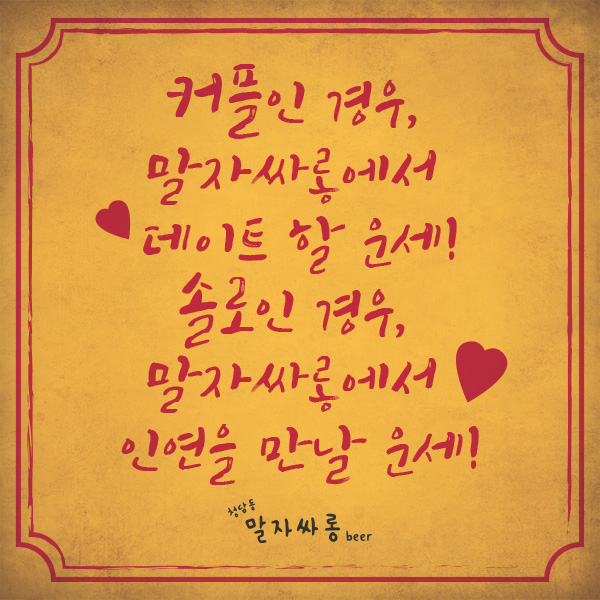 커플인 경우,
말자싸롱에서
데이트 할 운세!
솔로인 경우,
말자싸롱에서
인연을 만날 운세!
청담동
말자싸롱 beer